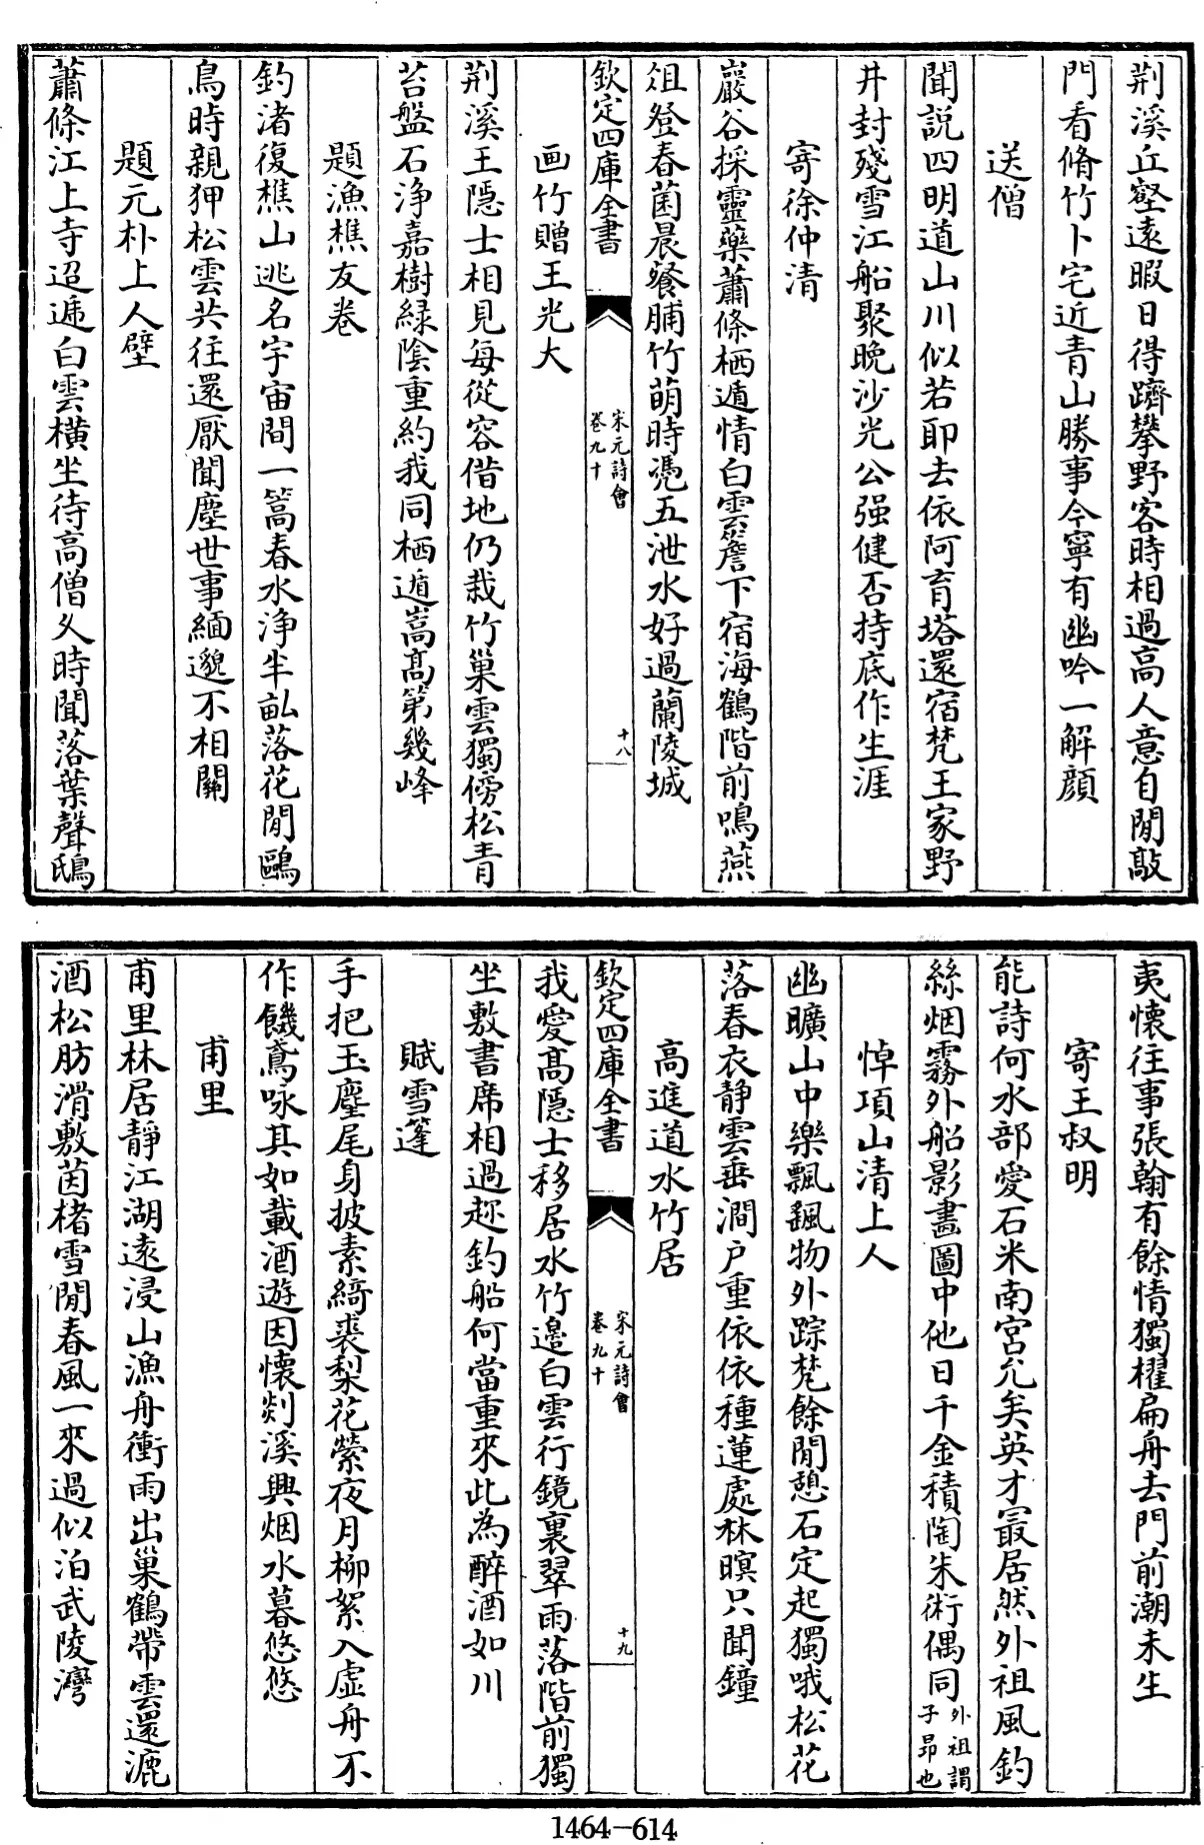 荆溪丘壑逺暇日得躋攀野客時相過髙人意自閒敲
門看脩竹卜宅近青山勝事今寧有幽吟一解顔
送僧
聞説四明道山川似若耶去依阿育塔還宿梵王家野
井封殘雪江船聚晩沙光公强健否持底作生涯
寄徐仲清
巖谷採靈藥蕭條栖遁情白雲簷下宿海鶴階前鳴燕
俎登春菌晨餐脯竹萌時慿五泄水好過蘭陵城
欽定四庫全書
宋元詩會
卷九十
十八
画竹贈王光大
荆溪王隠士相見每從容借地仍栽竹巢雲獨傍松青
苔盤石浄嘉樹緑陰重約我同栖遁嵩髙第幾峰
題漁樵友卷
釣渚復樵山逃名宇宙間一篙春水浄半畝落花閒鷗
鳥時親狎松雲共往還厭聞塵世事緬邈不相關
題元朴上人壁
蕭條江上寺迢逓白雲横坐待高僧久時聞落葉聲鴟
夷懐往事張翰有餘情獨櫂扁舟去門前潮未生
寄王叔明
能詩何水部愛石米南宫允矣英才最居然外祖風釣
絲烟霧外船影畫圖中他日千金積陶朱術偶同外祖謂子昻也
悼項山清上人
幽曠山中樂飄颻物外踪梵餘閒憩石定起獨哦松花
落春衣静雲垂澗户重依依種蓮處林暝只聞鐘
高進道水竹居
欽定四庫全書
宋元詩會
卷九十
十九
我愛髙隠士移居水竹邉白雲行鏡裏翠雨落階前獨
坐敷書席相過趂釣船何當重來此為醉酒如川
賦雪篷
手把玉麈尾身披素綺裘梨花縈夜月柳絮入虚舟不
作饑鳶咏其如載酒遊因懐剡溪興烟水暮悠悠
甫里
甫里林居靜江湖逺浸山漁舟衝雨出巢鶴帶雲還漉
酒松肪滑敷茵楮雪閒春風一來過似泊武陵灣
1464-614